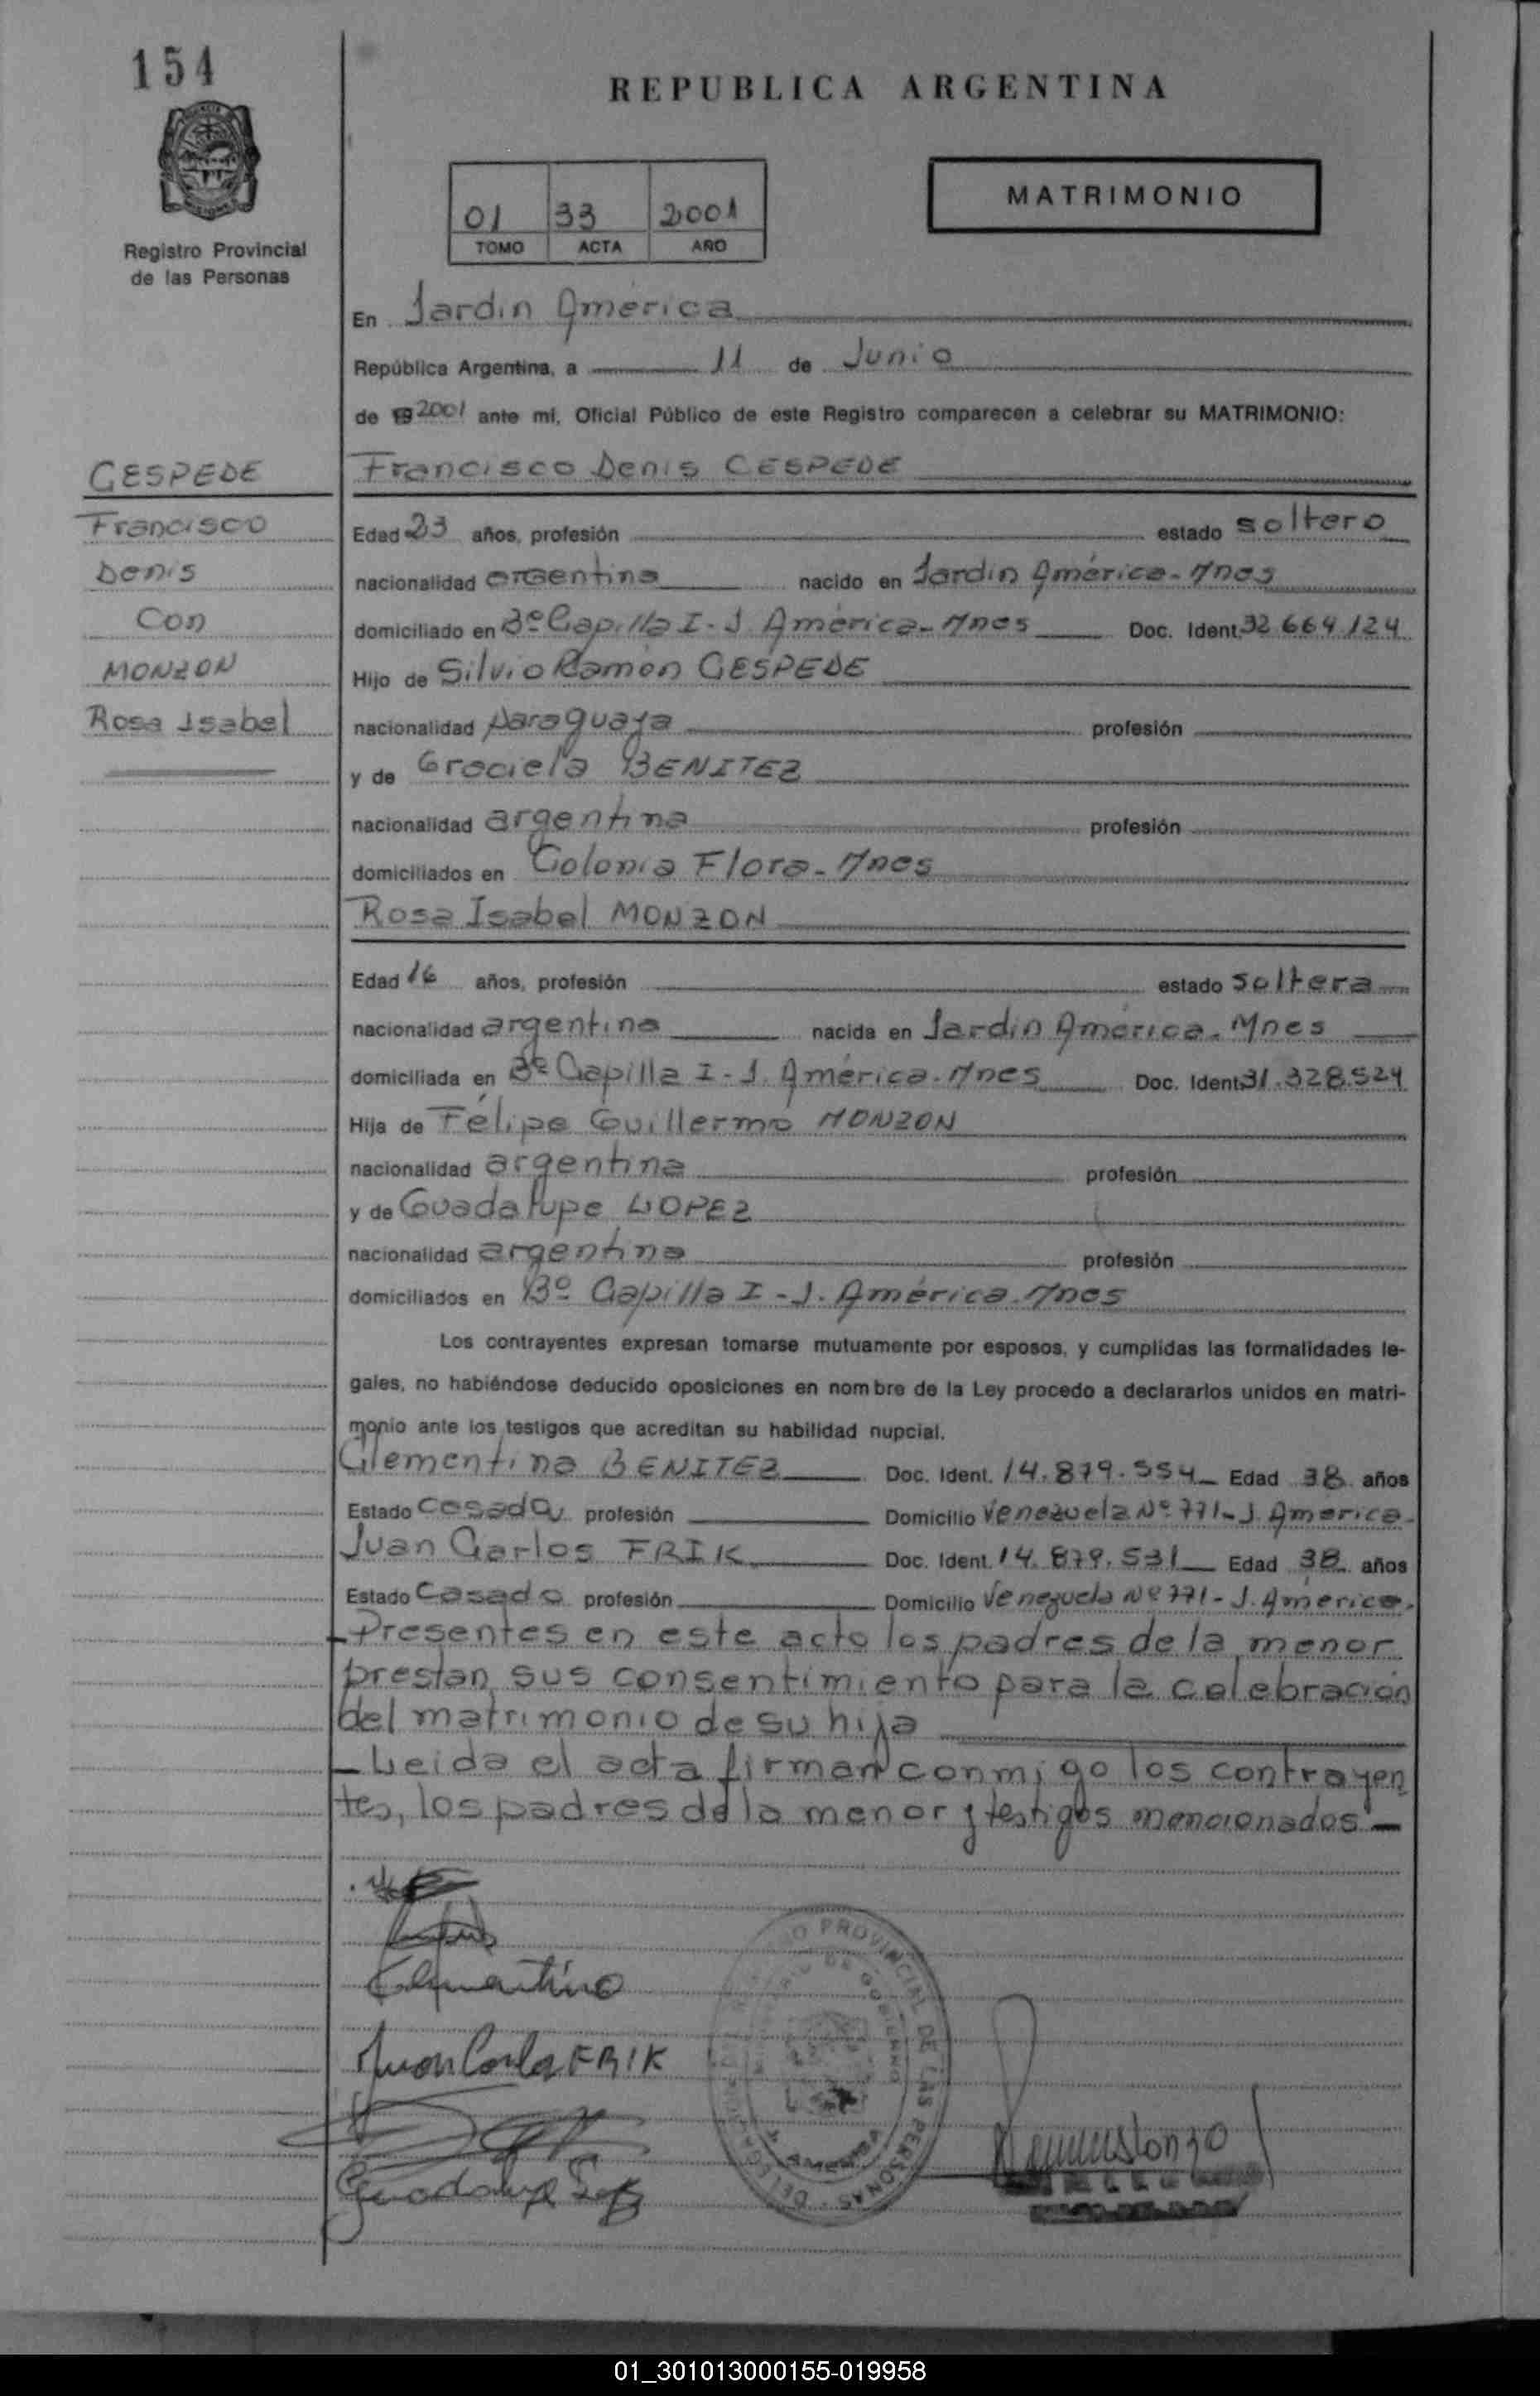 154
REPUBLICA ARGENTINA
MATRIMONIO
01 33 2001
TOMO ACTA AÑO
Registro Provincial
de las Personas
En Jardin América
República Argentina, a 11 de Junio
de 19 2001 ante mi, Oficial Público de este Registro comparecen a celebrar su MATRIMONIO:
CESPEDE
Francisco
Denis
Con
MONZON
Rosa Isabel
Francisco Denis CESPEDE
Edad 23 años, profesión estado soltero
nacionalidad argentina nacido en Jardin América - Mnes
domiciliado en Bº Capilla I - J. América - Mnes Doc. Ident. 32.664.124
Hijo de Silvio Ramón CESPEDE
nacionalidad paraguaya profesión
y de Graciela BENITEZ
nacionalidad argentina profesión
domiciliados en Colonia Flora - Mnes
Rosa Isabel MONZON
Edad 16 años, profesión estado soltera
nacionalidad argentina nacida en Jardin América - Mnes
domiciliada en Bº Capilla I - J. América - Mnes Doc. Ident. 31.328.524
Hija de Félipe Guillermo MONZON
nacionalidad argentina profesión
y de Guadalupe LOPEZ
nacionalidad argentina profesión
domiciliados en Bº Capilla I - J. América - Mnes
Los contrayentes expresan tomarse mutuamente por esposos, y cumplidas las formalidades le-
gales, no habiéndose deducido oposiciones en nombre de la Ley procedo a declararlos unidos en matri-
monio ante los testigos que acreditan su habilidad nupcial.
Clementina BENITEZ Doc. Ident. 14.879.554 Edad 38 años
Estado Casada profesión Domicilio Venezuela Nº 771 - J. América.
Juan Carlos FRIK Doc. Ident. 14.879.531 Edad 38 años
Estado Casado profesión Domicilio Venezuela Nº 771 - J. América.
- Presentes en este acto los padres de la menor
prestan sus consentimiento para la celebración
del matrimonio de su hija
- Leida el acta firman conmigo los contrayen
tes, los padres de la menor y testigos mencionados -
Clementina
Juan Carlos FRIK
Guadalupe Lopez
PROVINCIAL DE LAS PERSONAS
01_301013000155-019958